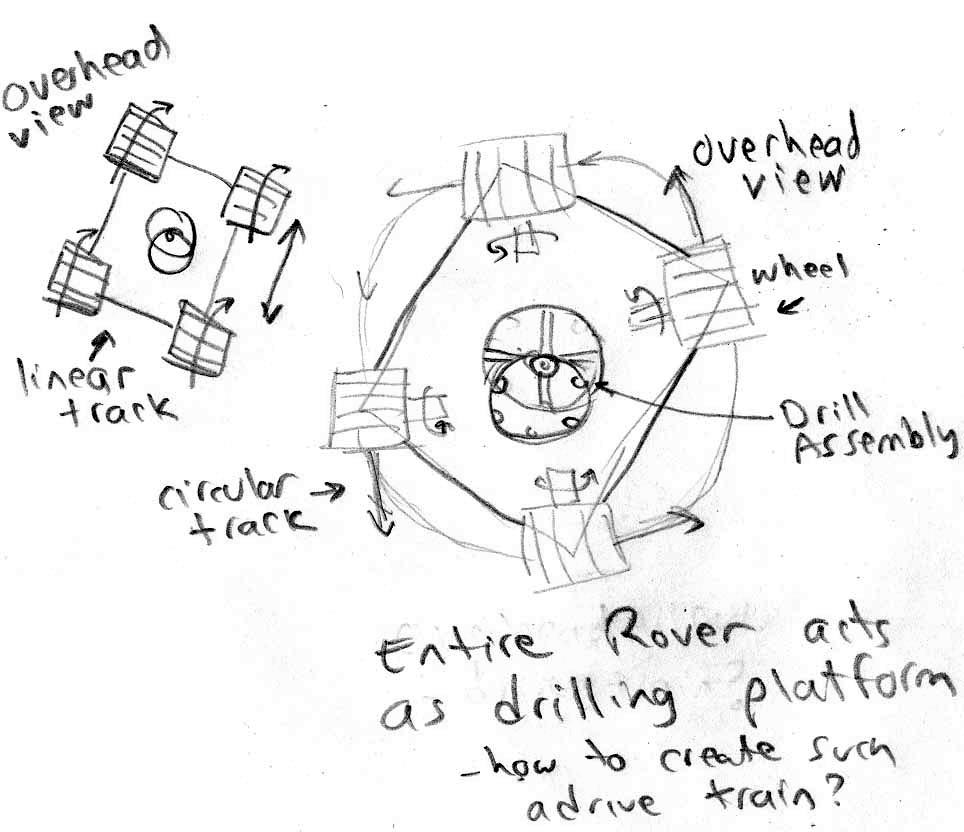 overhead
view
linear
track
overhead
view
wheel
Drill
Assembly
circular
track
Entire Rover acts
as drilling platform
- how to create such
a drive train?